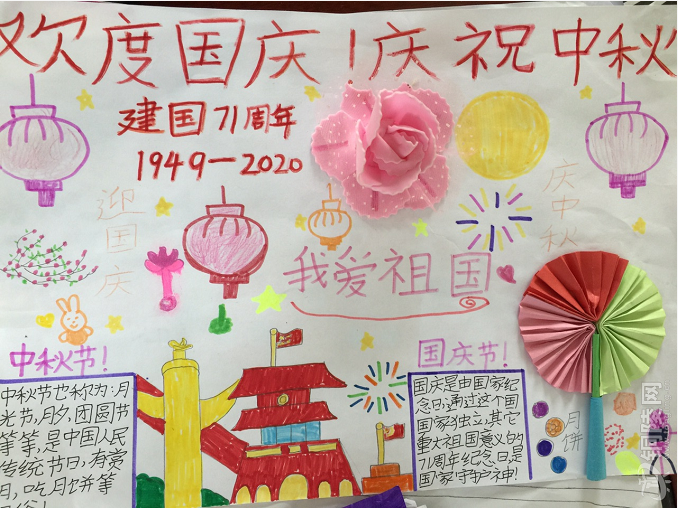 欢度国庆！庆祝中秋
建国71周年
1949—2020
迎国庆
庆中秋
我爱祖国
中秋节！
中秋节也称为：月
光节，月夕，团圆节
等等，是中国人民
传统节日，有赏
月，吃月饼等
国庆节！
国庆是由国家纪
念日，通过这个国
国家独立，其它
重大祖国意义的
71周年纪念日是
国家守护神！
月饼